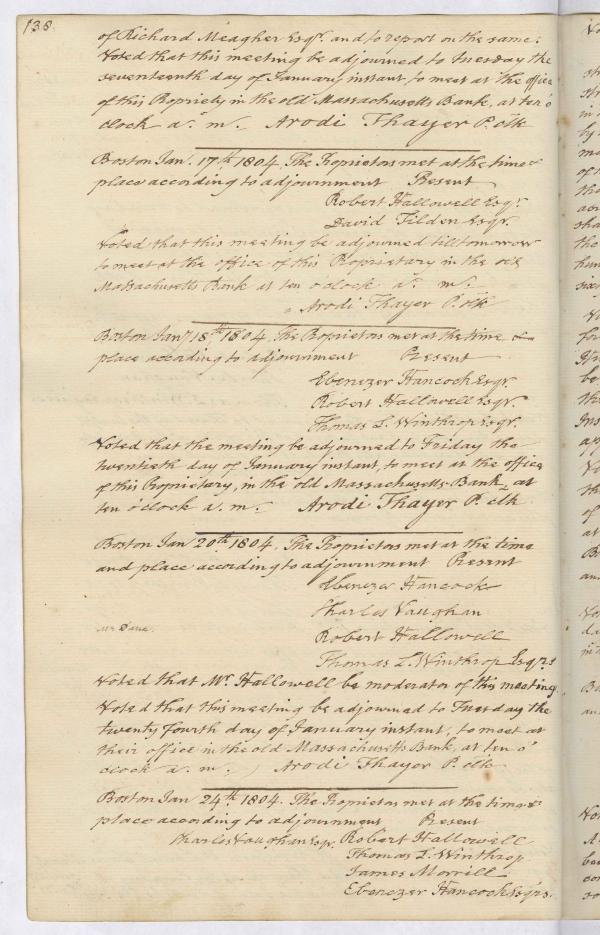 138.
of Richard Meagher Esqr. and to report on the same.
Voted that this meeting be adjourned to tuesday the
seventeenth day of January instant to meet at the office
of this Propriety in the old Massachusetts Bank, at ten o'
clock a. m. Arodi Thayer P. clk
Boston Jan. 17th 1804. The Proprietors met at the time &
place according to adjournment Present
Robert Hallowell Esqr.
David Tilden Esqr.
Voted that this meeting be adjourned till tomorrow
to meet at the office of this Proprietary in the old
Massachusetts Bank at ten o'clock a. m.
Arodi Thayer P. clk
Boston Jany 18th 1804. The Proprietors met at the time &
place according to adjournment Present
Ebenezer Hancock Esqr.
Robert Hallowell Esqr.
Thomas L. Winthrop Esqr.
Voted that the meeting be adjourned to Friday the
twentieth day of January instant, to meet at the office
of this Proprietary, in the old Massachusetts Bank, at
ten o'clock a. m. Arodi Thayer P. clk
Boston Jan 20th 1804. The Proprietors met at the time
and place according to adjournment Present
Ebenezer Hancock
Charles Vaughan
Mr Dane.
Robert Hallowell
Thomas L. Winthrop Esqrs
Voted that Mr. Hallowell be moderator of this meeting.
Voted that this meeting be adjourned to Tuesday the
twenty fourth day of January instant, to meet at
their office in the old Massachusetts Bank, at ten o'
clock a. m. Arodi Thayer P. clk
Boston Jan 24th 1804. The Proprietors met at the time &
place according to adjournment Present
Charles Vaughan Esqr. Robert Hallowell
Thomas L. Winthrop
James Morrill
Ebenezer Hancock Esqrs.